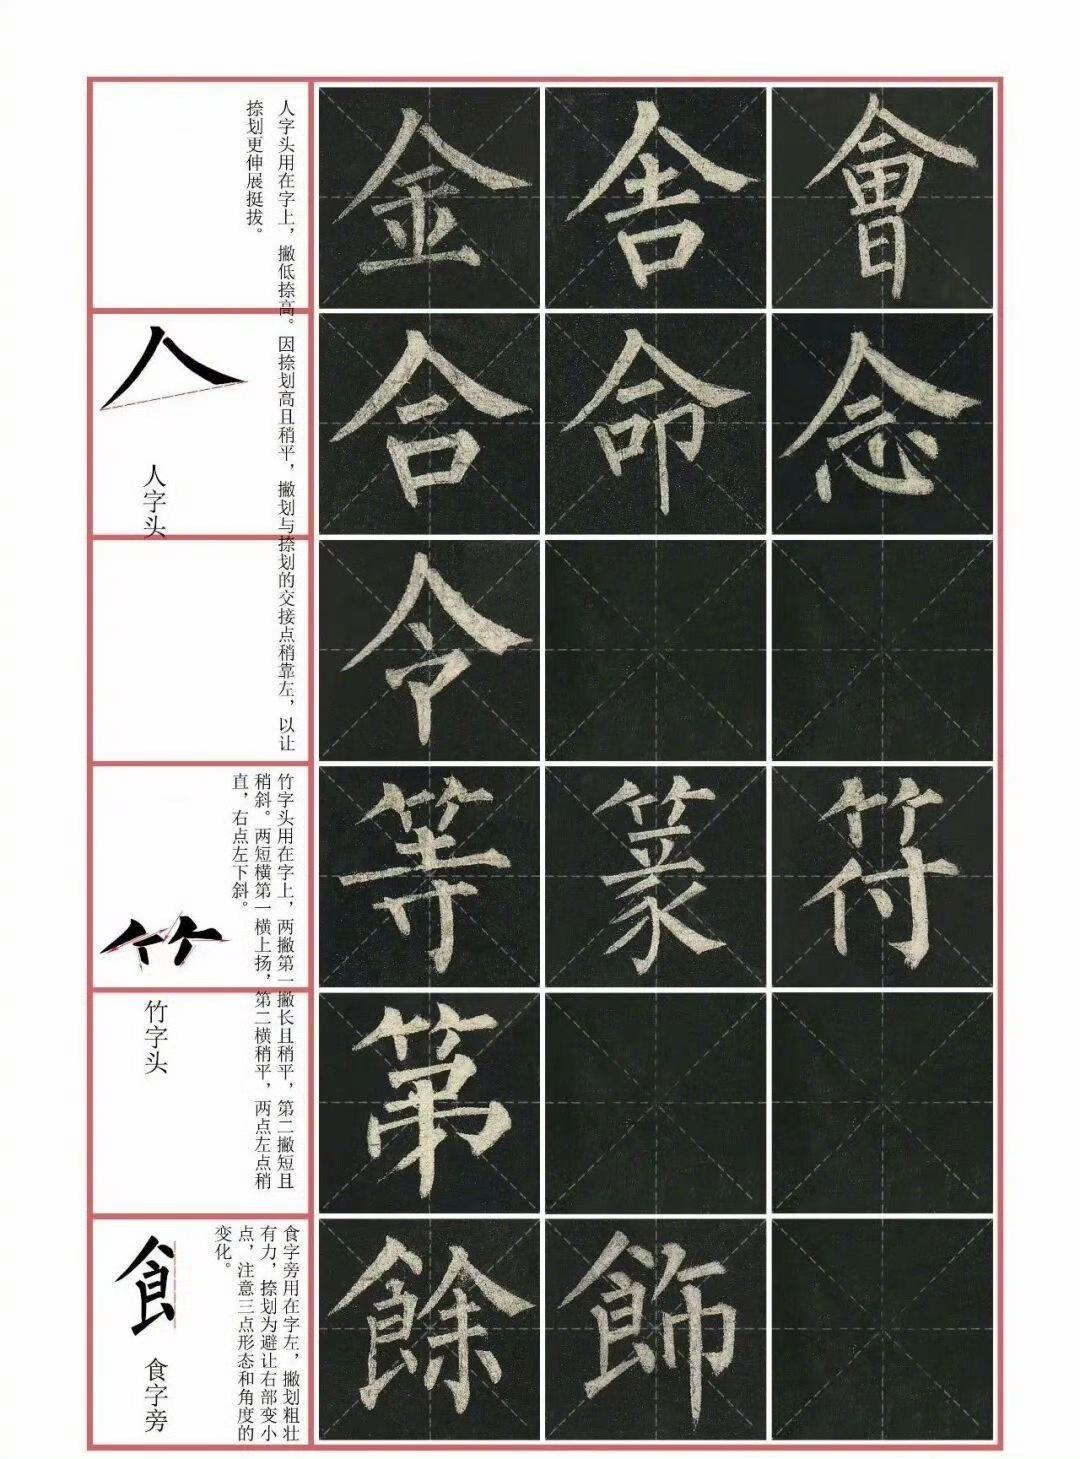 人字头用在字上，撇低捺高。因捺划高且稍平，撇划与捺划的交接点稍靠左，以让
捺划更伸展挺拔。
人
人字头
金 舍 會
含 命 念
令
竹字头用在字上，两撇第一撇长且稍平，第二撇短且
稍斜。两短横第一横上扬，第二横稍平，两点左点稍
直，右点左下斜。
竹字头
等 篆 符
第
食字旁用在字左，撇划粗壮
有力，捺划为避让右部变小
点，注意三点形态和角度的
变化。
飠
食字旁
餘 飾